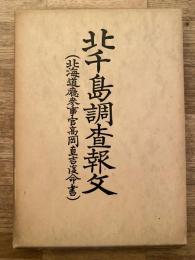 北千島調査報文
(北海道廳参事官高岡直吉復命書)